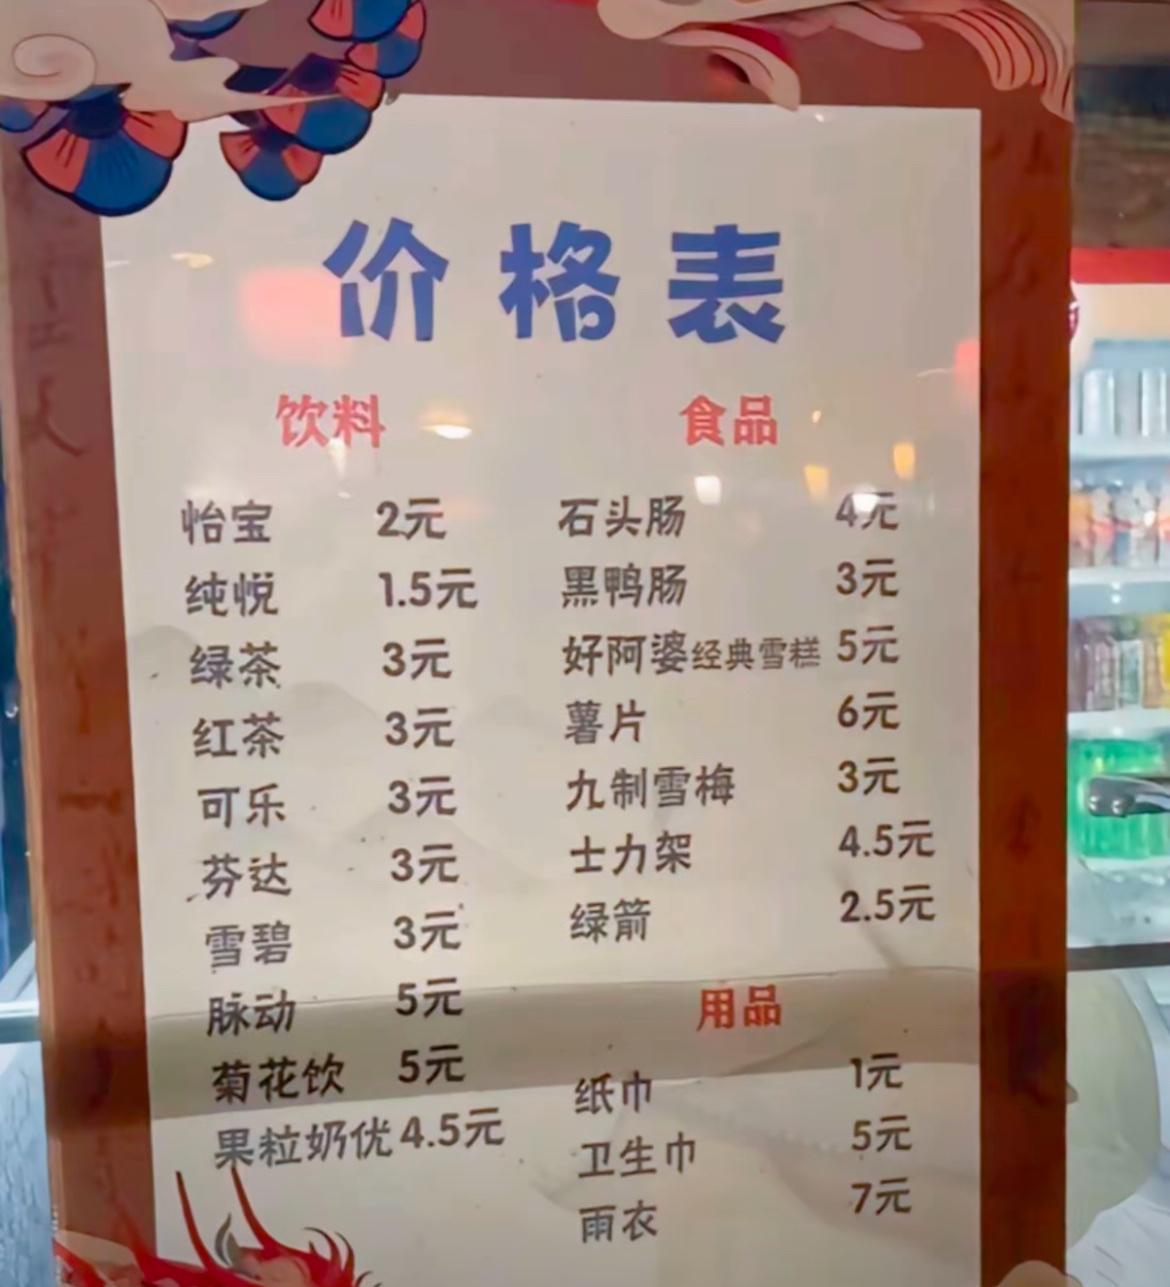 价格表
饮料
怡宝 2元
纯悦 1.5元
绿茶 3元
红茶 3元
可乐 3元
芬达 3元
雪碧 3元
脉动 5元
菊花饮 5元
果粒奶优 4.5元
食品
石头肠 4元
黑鸭肠 3元
好阿婆经典雪糕 5元
薯片 6元
九制雪梅 3元
士力架 4.5元
绿箭 2.5元
用品
纸巾 1元
卫生巾 5元
雨衣 7元